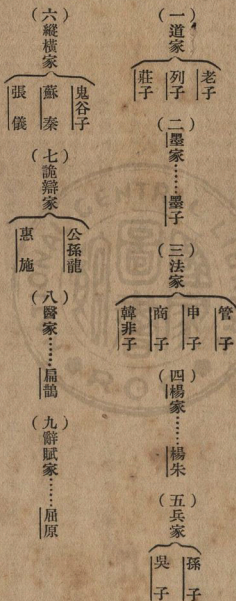 (一)道家
老子
列子
莊子
(二)墨家……墨子
(三)法家
管子
申子
商子
韓非子
(四)楊家……楊朱
(五)兵家
孫子
吳子
(六)縱橫家
鬼谷子
蘇秦
張儀
(七)詭辯家
公孫龍
惠施
(八)醫家……扁鵲
(九)辭賦家……屈原